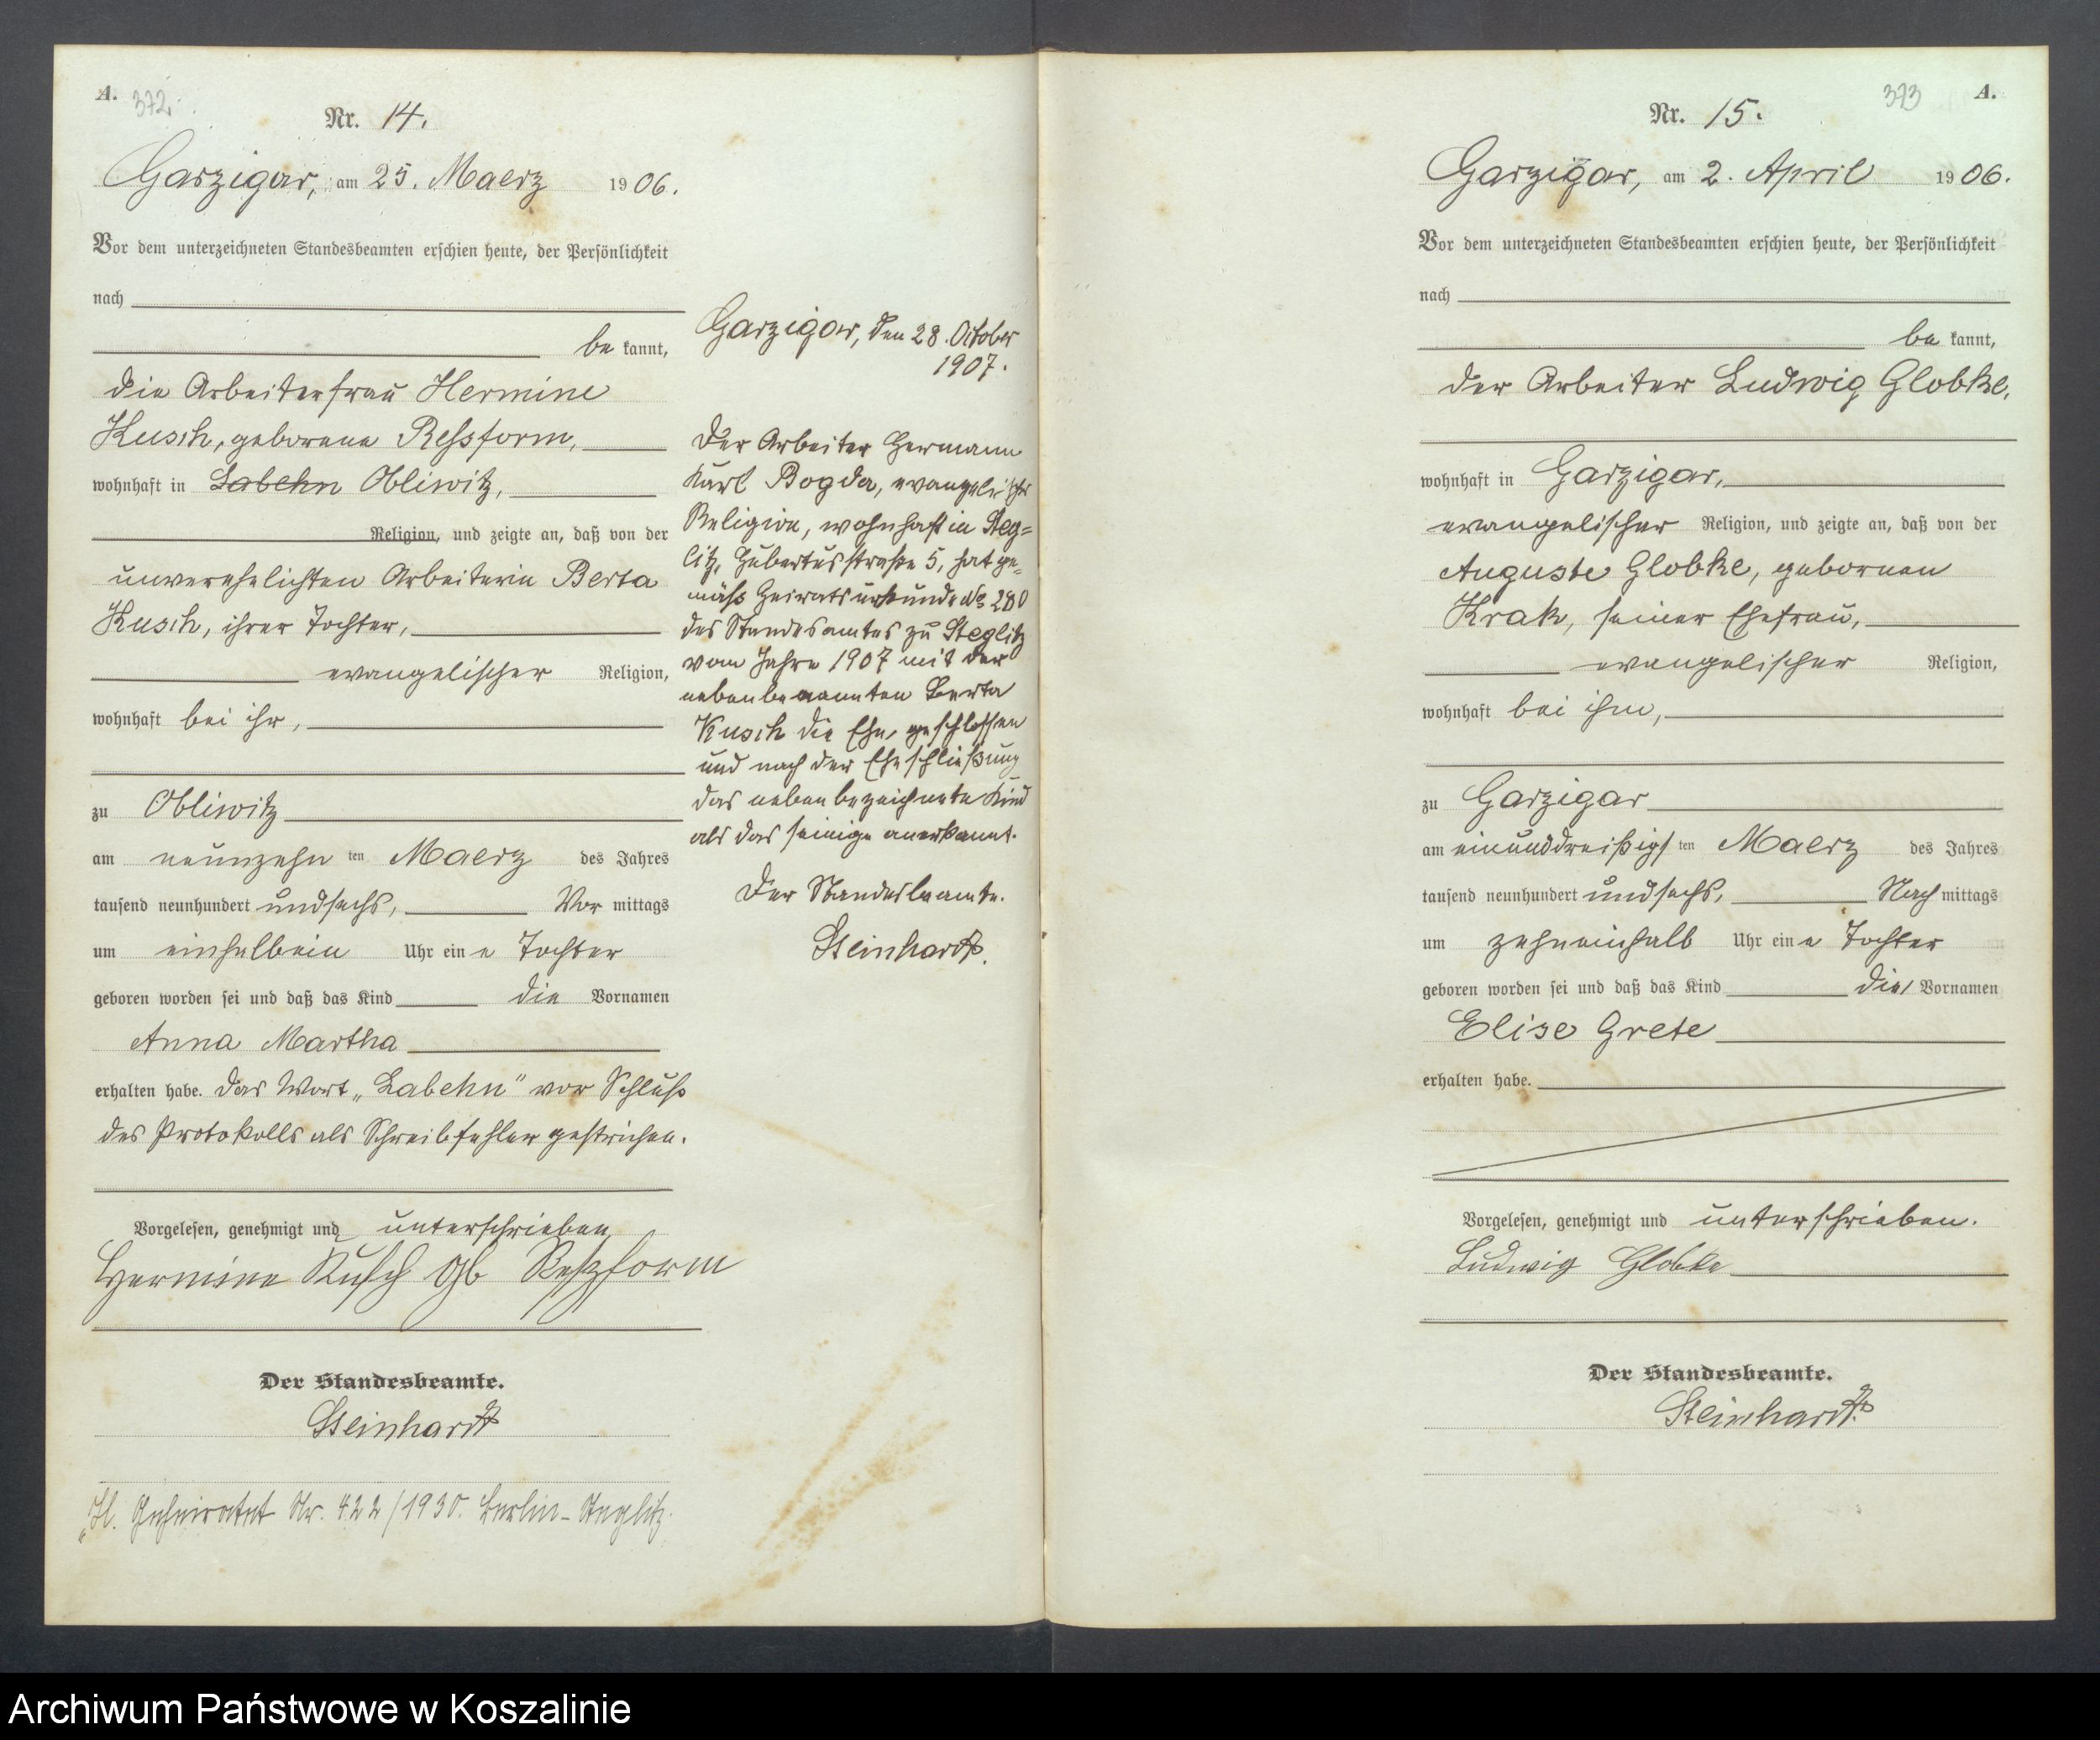 A. 372.
Nr. 14.
Garzigar, am 25. Maerz 1906.
Vor dem unterzeichneten Standesbeamten erschien heute, der Persönlichkeit
nach
be kannt,
die Arbeiterfrau Hermine
Kusch, geborene Ressform,
wohnhaft in Labehn Obliwitz,
Religion, und zeigte an, daß von der
unverehelichten Arbeiterin Berta
Kusch, ihrer Tochter,
evangelischer Religion,
wohnhaft bei ihr,
zu Obliwitz
am neunzehn ten Maerz des Jahres
tausend neunhundert undsechs, Vor mittags
um einhalbein Uhr ein e Tochter
geboren worden sei und daß das Kind die Vornamen
Anna Martha
erhalten habe. Das Wort „Labehn" vor Schluß
des Protokolls als Schreibfehler gestrichen.
Vorgelesen, genehmigt und unterschrieben
Hermine Kusch gb Reszform
Der Standesbeamte.
Steinhardt
Nr. 422/1930. Berlin-Steglitz.
Garzigar, den 28. October
1907.
Der Arbeiter Hermann
Karl Bogda, evangelischer
Religion, wohnhaft in Steg=
litz, Hubertusstraße 5, hat ge=
mäß Heiratsurkunde No 280
des Standesamtes zu Steglitz
vom Jahre 1907 mit der
nebenbenannten Berta
Kusch die Ehe geschlossen
und nach der Eheschließung
das nebenbezeichnete Kind
als das seinige anerkannt.
Der Standesbeamte.
Steinhardt.
373 A.
Nr. 15.
Garzigar, am 2. April 1906.
Vor dem unterzeichneten Standesbeamten erschien heute, der Persönlichkeit
nach
be kannt,
der Arbeiter Ludwig Globke,
wohnhaft in Garzigar,
evangelischer Religion, und zeigte an, daß von der
Auguste Globke, gebornen
Krak, seiner Ehefrau,
evangelischer Religion,
wohnhaft bei ihm,
zu Garzigar
am einunddreißigs ten Maerz des Jahres
tausend neunhundert undsechs, Nach mittags
um zehneinhalb Uhr ein e Tochter
geboren worden sei und daß das Kind die Vornamen
Elise Grete
erhalten habe.
Vorgelesen, genehmigt und unterschrieben.
Ludwig Globke
Der Standesbeamte.
Steinhardt.
Archiwum Państwowe w Koszalinie